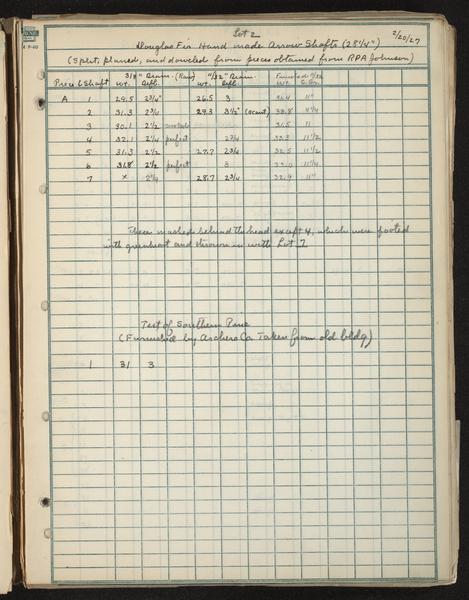 Lot 2 2/20/27
Douglas Fir Hand made Arrow Shafts (28 1/4")
(Split, planed, and doweled from pieces obtained from RPA Johnson)
3/8" Diam. (Raw) 11/32" Diam. Finished
Piece & Shaft Wt. Defl. Wt. Defl. Wt.
A 1 29.5 2 3/4" 26.5 3 11"
2 31.3 2 3/4 29.3 3 1/2" (scant)
3 30.1 2 1/2 31.5 11
4 32.1 2 1/4 perfect 2 3/4 11 1/2
5 31.3 2 1/2 27.7 2 3/4 32.5 11 1/2
6 31.8 2 1/2 perfect 3
7 x 2 3/4 28.7 2 3/4 32.9 11"
These washed behind the head except 4, which were footed
with greenheart and thrown in with Lot 7
Test of Southern Pine
(Furnished by Archers Co Taken from old bldg)
1 31 3